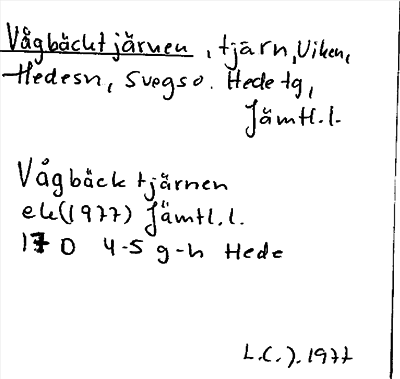 Vågbäcktjärnen, tjärn, Viken,
Hedesn, Svegs o. Hede tg,
Jämtl.l.
Vågbäcktjärnen
ek (1977) Jämtl.l.
17 D 4-5 g-h Hede
L.C.J. 1977